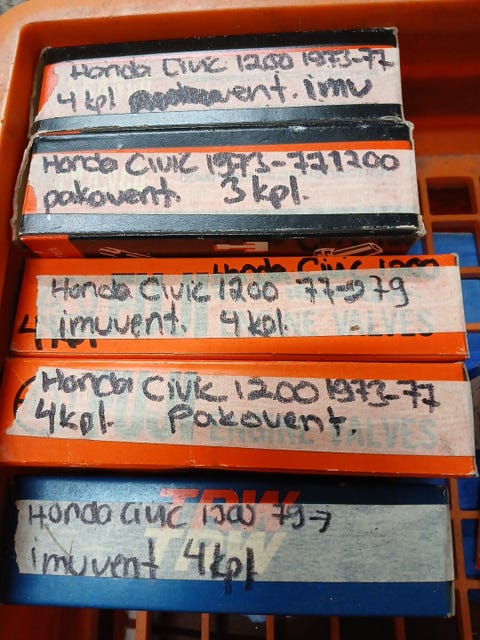 Honda Civic 1200 1973-77
4 kpl vent. imu
Honda Civic 1973-77 1200
pakovent. 3 kpl.
Honda Civic 1200
Honda Civic 1200 77-79
imuvent. 4 kpl.
4 kpl
ENGINE VALVES
Honda Civic 1200 1973-77
4 kpl. Pakovent.
ENGINE VALVES
TRW
Honda Civic 1300 79→
TRW
imuvent 4 kpl